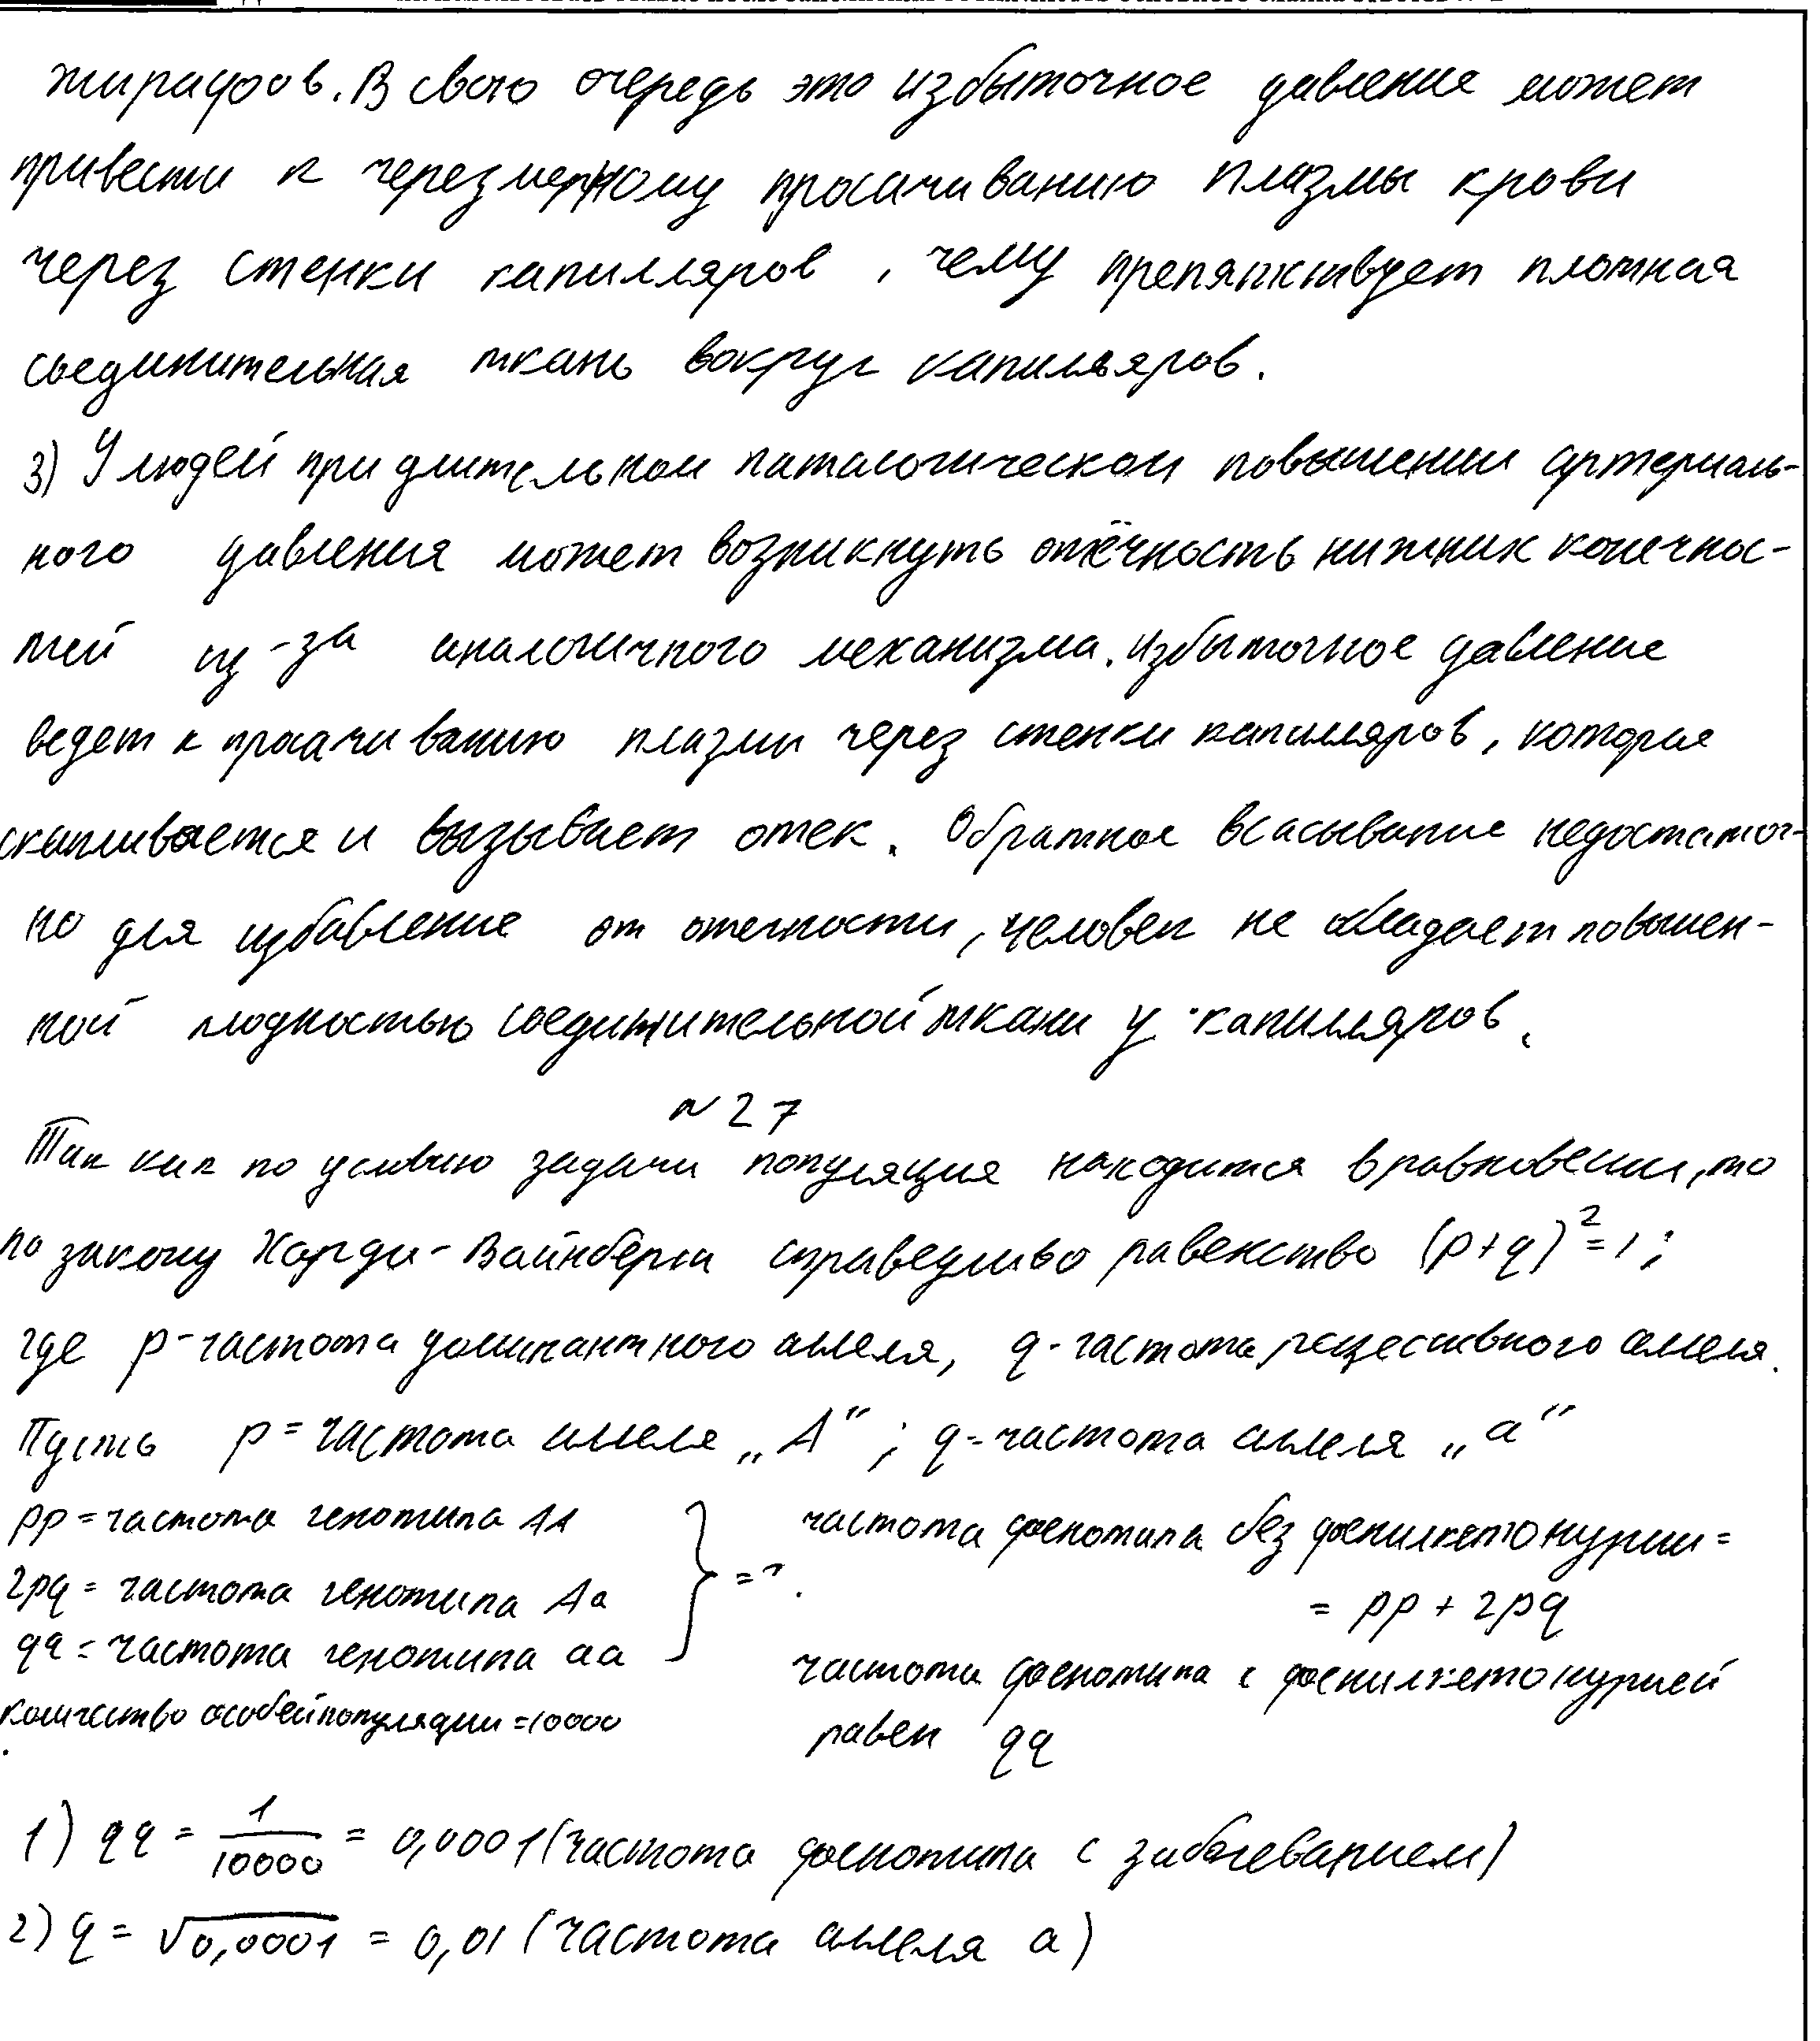 жирафов. В свою очередь это избыточное давление может
привести к черезмерному просачиванию плазмы крови
через стенки капилляров, чему препятствует плотная
соединительная ткань вокруг капилляров.
3) У людей при длительном патологическом повышении артериаль-
ного давления может возникнуть отёчность нижних конечнос-
тей из-за аналогичного механизма. Избыточное давление
ведет к просачиванию плазмы через стенки капилляров, которая
скапливается и вызывает отек. Обратное всасывание недостаточ-
но для избавление от отечности, человек не обладает повышен-
ной плотностью соединительной ткани у капилляров.
№ 27
Так как по условию задачи популяция находится в равновесии, то
по закону Харди-Вайнберга справедливо равенство (p+q)²=1;
где p-частота доминантного аллеля, q-частота рецессивного аллеля.
Пусть p = частота аллеля „A“; q-частота аллеля „a“
pp = частота генотипа AA
2pq = частота генотипа Aa
qq = частота генотипа aa
количество особей популяции =10000
} =>
частота фенотипа без фенилкетонурии =
= pp + 2pq
частота фенотипа с фенилкетонурией
равен qq
1) qq = 1/10000 = 0,0001 (частота фенотипа с заболеванием)
2) q = √0,0001 = 0,01 (частота аллеля a)